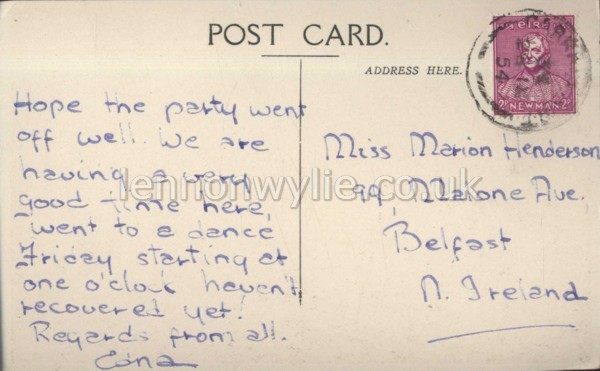 POST CARD.
ADDRESS HERE.
éire
2p NEWMAN 2p
54
Hope the party went
off well. We are
having a very
good time here,
went to a dance
Friday starting at
one o'clock haven't
recovered yet!
Regards from all.
Edna
Miss Marion Henderson
99, Malone Ave.
Belfast
N. Ireland
lennonwylie.co.uk